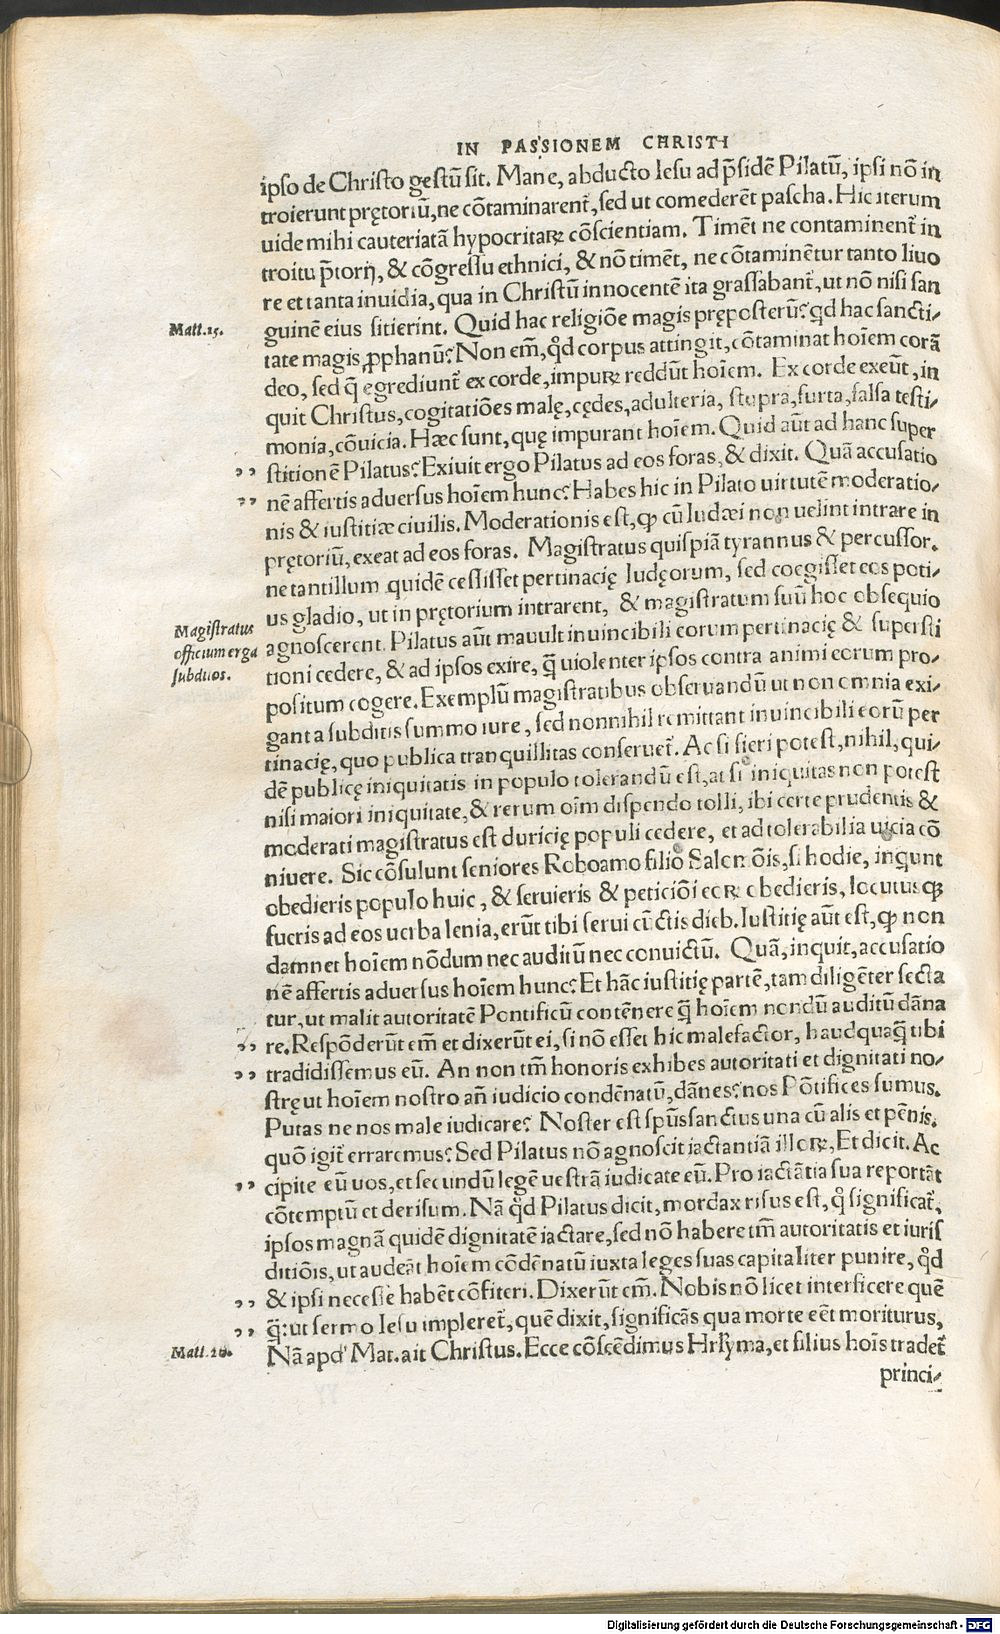 IN PASSIONEM CHRISTI
ipso de Christo gestū sit. Mane, abducto Iesu ad p̄sidē Pilatū, ipsi nō in
troierunt prętoriū, ne cōtaminarent̄, sed ut comederēt pascha. Hic iterum
uide mihi cauteriatā hypocritaꝝ cōscientiam. Timēt ne contaminent̄ in
troitu p̄torij, & cōgressu ethnici, & nō timēt, ne cōtaminētur tanto liuo
re et tanta inuidia, qua in Christū innocentē ita grassabant̄, ut nō nisi san
Matt.15.
guinē eius sitierint. Quid hac religiōe magis pręposterū? qd hac sancti⸗
tate magis ꝓphanū? Non em̄, qd̄ corpus attingit, cōtaminat hoīem corā
deo, sed q̄ egrediunt̄ ex corde, impuꝝ reddūt hoīem. Ex corde exeūt, in
quit Christus, cogitatiōes malę, cędes, adulteria, stupra, furta, falsa testi⸗
monia, cōuicia. Hæc sunt, quę impurant hoīem. Quid aūt ad hanc super
,, stitionē Pilatus? Exiuit ergo Pilatus ad eos foras, & dixit. Quā accusatio
,, nē affertis aduersus hoīem hunc? Habes hic in Pilato uirtutē moderatio⸗
nis & iustitiæ ciuilis. Moderationis est, ꝙ cū Iudæi non uelint intrare in
prętoriū, exeat ad eos foras. Magistratus quispiā tyrannus & percussor,
ne tantillum quidē cessisset pertinacię Iudęorum, sed coegisset eos poti⸗
us gladio, ut in prętorium intrarent, & magistratum suū hoc obsequio
Magistratus
officium erga
subditos.
agnoscerent. Pilatus aūt mauult inuincibili eorum pertinacię & supersti
tioni cedere, & ad ipsos exire, q̄ uiolenter ipsos contra animi eorum pro⸗
positum cogere. Exemplū magistratibus obseruandū ut non omnia exi⸗
gant a subditis summo iure, sed nonnihil remittant inuincibili eorū per
tinacię, quo publica tranquillitas conseruet̄. Ac si fieri potest, nihil, qui⸗
dē publicę iniquitatis in populo tolerandū est, at si iniquitas non potest
nisi maiori iniquitate, & rerum oīm dispendo tolli, ibi certe prudentis &
moderati magistratus est duricię populi cedere, et ad tolerabilia uicia cō
niuere. Sic cōsulunt seniores Roboamo filio Salomōis, si hodie, inqunt
obedieris populo huic, & seruieris & peticiōi eoꝝ obedieris, locutusꝙ
fueris ad eos uerba lenia, erūt tibi serui cūctis dieb. Iustitię aūt est, ꝙ non
damnet hoīem nōdum nec auditū nec conuictū. Quā, inquit, accusatio
nē affertis aduersus hoīem hunc? Et hāc iustitię partē, tam diligēter secta
tur, ut malit autoritatē Pontificū contēnere q̄ hoīem nondū auditū dāna
,, re. Respōderūt em̄ et dixerūt ei, si nō esset hic malefactor, haudquaq̄ tibi
,, tradidissemus eū. An non tm̄ honoris exhibes autoritati et dignitati no⸗
stręut hoīem nostro an̄ iudicio condēnatū, dānes? nos Pōtifices sumus.
Putas ne nos male iudicare? Noster est spūssanctus una cū alis et pēnis,
quō igit̄ erraremus? Sed Pilatus nō agnoscit iactantiā illoꝝ, Et dicit. Ac
,, cipite eū uos, et secundū legē uestrā iudicate eū. Pro iactātia sua reportāt
cōtemptū et derisum. Nā qd̄ Pilatus dicit, mordax risus est, q̊ significat̄,
ipsos magnā quidē dignitatē iactare, sed nō habere tm̄ autoritatis et iuris
ditiōis, ut audeāt hoīem cōdēnatū iuxta leges suas capitaliter punire, qd̄
,, & ipsi necesse habēt cōfiteri. Dixerūt em̄. Nobis nō licet interficere quē
,, q̄: ut sermo Iesu impleret̄, quē dixit, significās qua morte eēt moriturus,
Matt.20.
Nā apd' Mat. ait Christus. Ecce cōscēdimus Hrłyma, et filius hoīs tradet̄
princi⸗
Digitalisierung gefördert durch die Deutsche Forschungsgemeinschaft - DFG